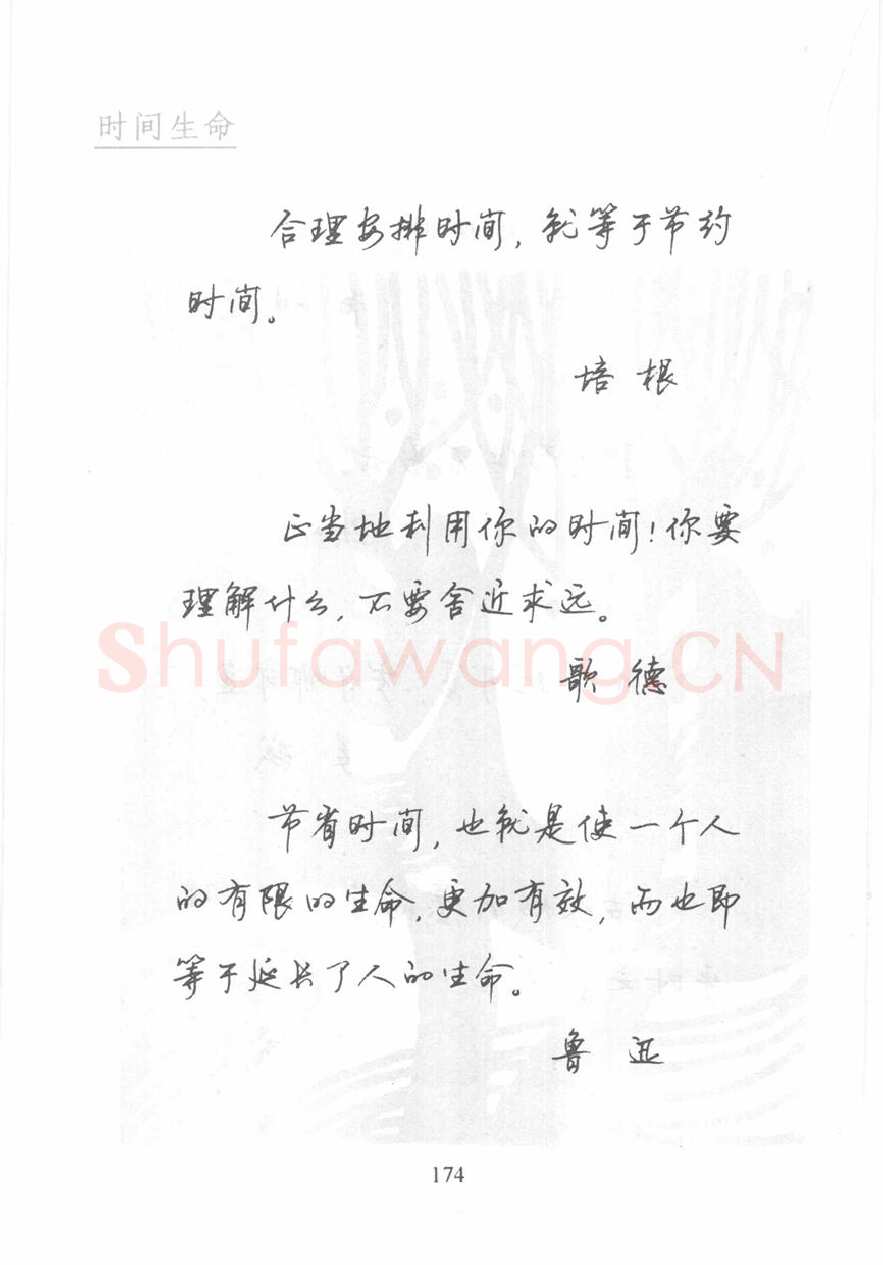 时间生命
合理安排时间，就等于节约
时间。
培根
正当地利用你的时间！你要
理解什么，不要舍近求远。
Shufawang.CN
歌德
节省时间，也就是使一个人
的有限的生命，更加有效，而也即
等于延长了人的生命。
鲁迅
174